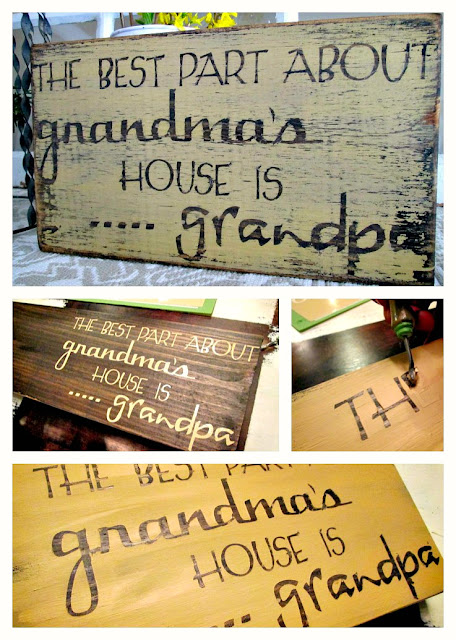 THE BEST PART ABOUT
grandma's
HOUSE IS
..... grandpa
THE BEST PART ABOUT
grandma's
HOUSE IS
..... grandpa
TH
THE BEST PART
grandma's
HOUSE IS
.... grandpa